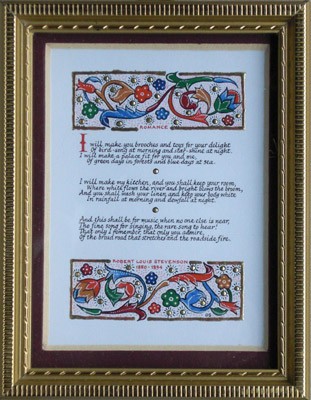 ROMANCE
I will make you brooches and toys for your delight
Of bird-song at morning and star-shine at night.
I will make a palace fit for you and me,
Of green days in forests and blue days at sea.
I will make my kitchen, and you shall keep your room,
Where white flows the river and bright blows the broom,
And you shall wash your linen and keep your body white
In rainfall at morning and dewfall at night.
And this shall be for music when no one else is near,
The fine song for singing, the rare song to hear!
That only I remember, that only you admire,
Of the broad road that stretches and the roadside fire.
ROBERT LOUIS STEVENSON
1850 - 1894